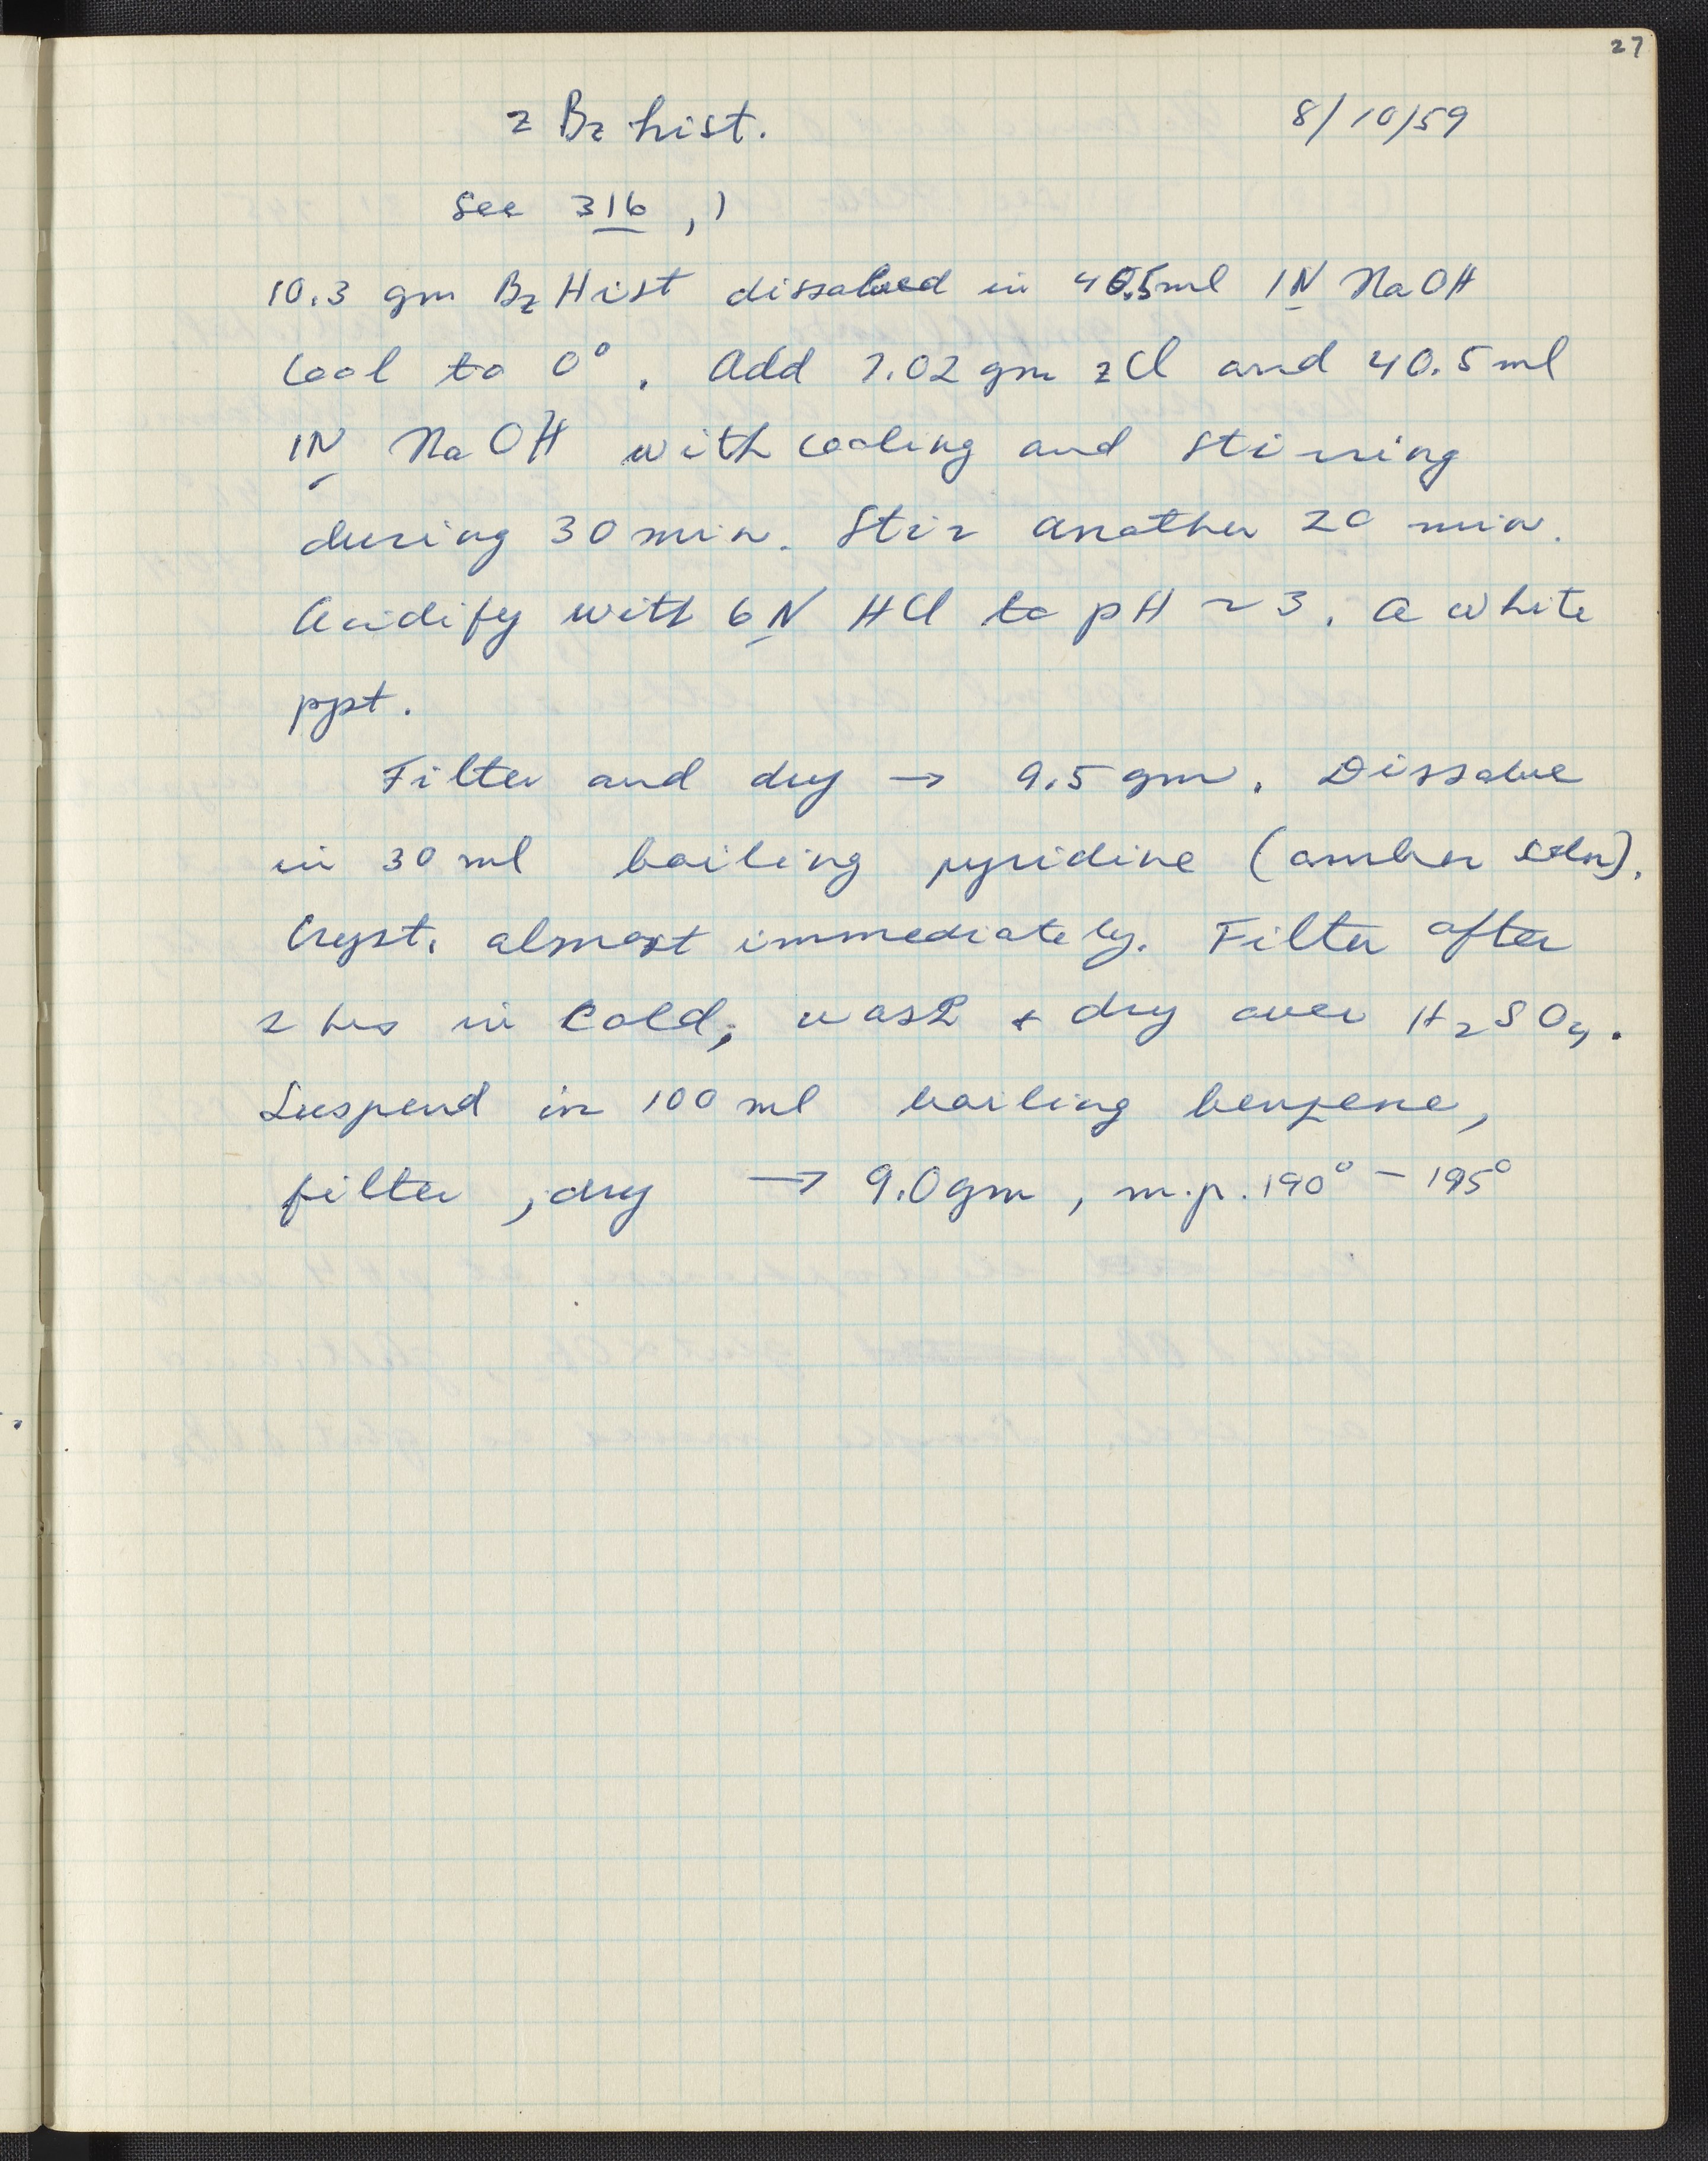 27
z Bz hist. 8/10/59
See 316, 1
10.3 gm Bz Hist dissolved in 40.5 ml 1N NaOH
Cool to 0°. Add 7.02 gm zCl and 40.5 ml
1N NaOH with cooling and stirring
during 30 min. Stir another 20 min.
Acidify with 6N HCl to pH ~ 3. A white
ppt.
Filter and dry → 9.5 gm. Dissolve
in 30 ml boiling pyridine (amber soln).
Cryst. almost immediately. Filter after
2 hrs in cold, wash + dry over H₂SO₄.
Suspend in 100 ml boiling benzene,
filter, dry → 9.0 gm, m.p. 190° – 195°